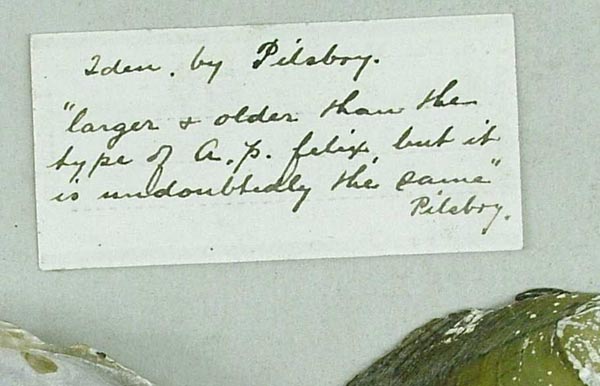 Iden. by Pilsbry.
"larger & older than the
type of A. p. felix, but it
is undoubtedly the same"
Pilsbry.